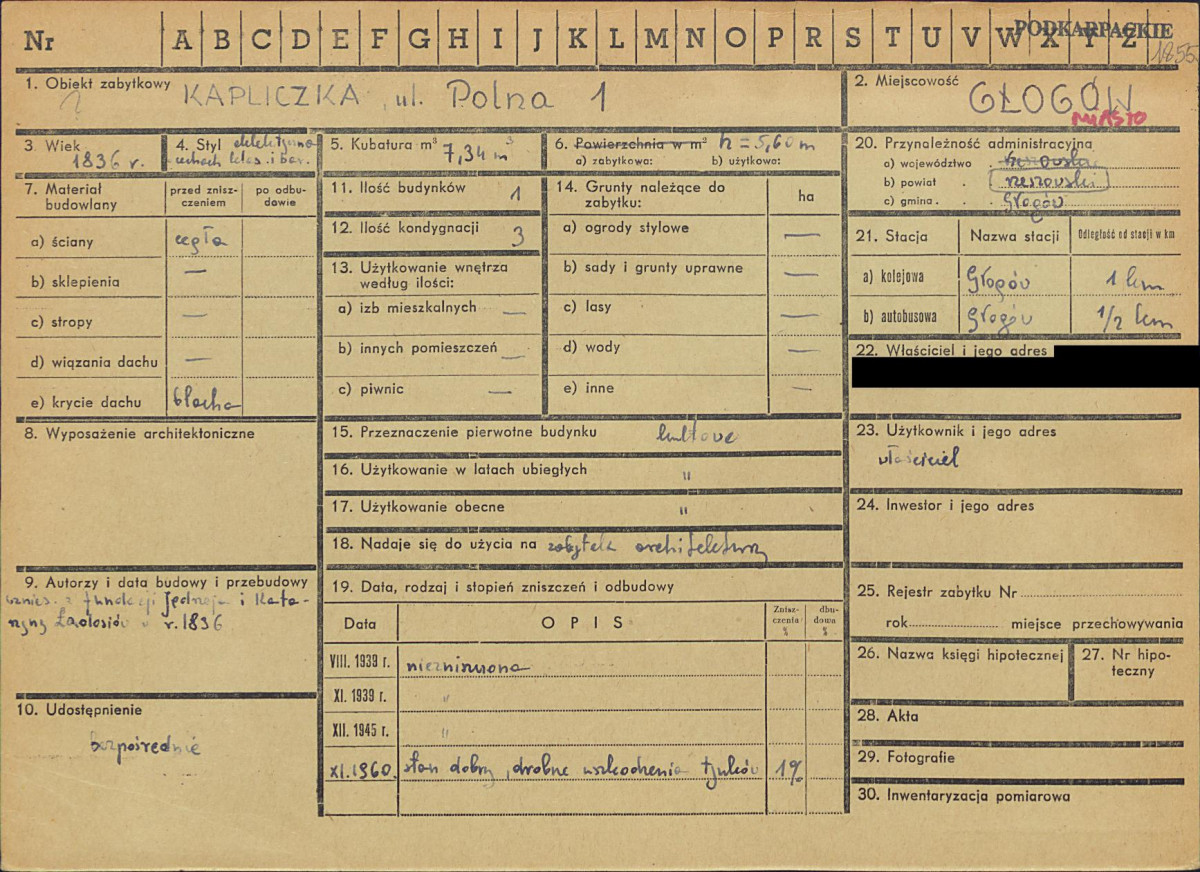 Nr A B C D E F G H I J K L M N O P R S T U V W X Y Z
PODKARPACKIE
1855
1. Obiekt zabytkowy KAPLICZKA, ul. Polna 1
2. Miejscowość GŁOGÓW
MIASTO
3 Wiek
1836 r.
4. Styl
cechach klas. i bar.
5. Kubatura m³ 7,34 m³
6. Powierzchnia w m² h = 5,60 m
a) zabytkowa: b) użytkowa:
7. Materiał budowlany
przed zniszczeniem
po odbudowie
a) ściany cegła
b) sklepienia —
c) stropy —
d) wiązania dachu —
e) krycie dachu blacha
8. Wyposażenie architektoniczne
9. Autorzy i data budowy i przebudowy
wznies. z fundacji Jędrzeja i Kata-
rzyny r. 1836
10. Udostępnienie
bezpośrednie
11. Ilość budynków 1
12. Ilość kondygnacji 3
13. Użytkowanie wnętrza
według ilości:
a) izb mieszkalnych —
b) innych pomieszczeń —
c) piwnic —
14. Grunty należące do
zabytku:
ha
a) ogrody stylowe —
b) sady i grunty uprawne —
c) lasy —
d) wody —
e) inne —
15. Przeznaczenie pierwotne budynku kultowe
16. Użytkowanie w latach ubiegłych "
17. Użytkowanie obecne "
18. Nadaje się do użycia na zabytek architektury
19. Data, rodzaj i stopień zniszczeń i odbudowy
Data OPIS Zniszczenia % dbudowa %
VIII. 1939 r. niezniszczona
XI. 1939 r. "
XII. 1945 r. "
XI. 1960. stan dobry, drobne uszkodzenia tynków 1%
20. Przynależność administracyjna
a) województwo . rzeszowskie
b) powiat . rzeszowski
c) gmina . Głogów
21. Stacja Nazwa stacji Odległość od stacji w km
a) kolejowa Głogów 1 km
b) autobusowa Głogów 1/2 km
22. Właściciel i jego adres
23. Użytkownik i jego adres
właściciel
24. Inwestor i jego adres
25. Rejestr zabytku Nr
rok miejsce przechowywania
26. Nazwa księgi hipotecznej
27. Nr hipo-
teczny
28. Akta
29. Fotografie
30. Inwentaryzacja pomiarowa